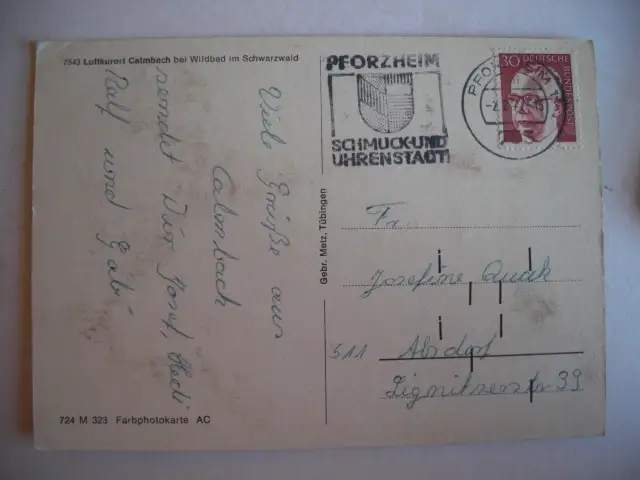 7543 Luftkurort Calmbach bei Wildbad im Schwarzwald
Viele Grüße aus
Calmbach
sendet Dir Josef, Hedi
Ralf und Gabi
724 M 323 Farbphotokarte AC
Gebr. Metz, Tübingen
PFORZHEIM
SCHMUCK-UND
UHRENSTADT
PFORZHEIM
30 DEUTSCHE
BUNDESPOST
Fr.
Josefine Quak
511 Alsdorf
Lignitzerstr 39